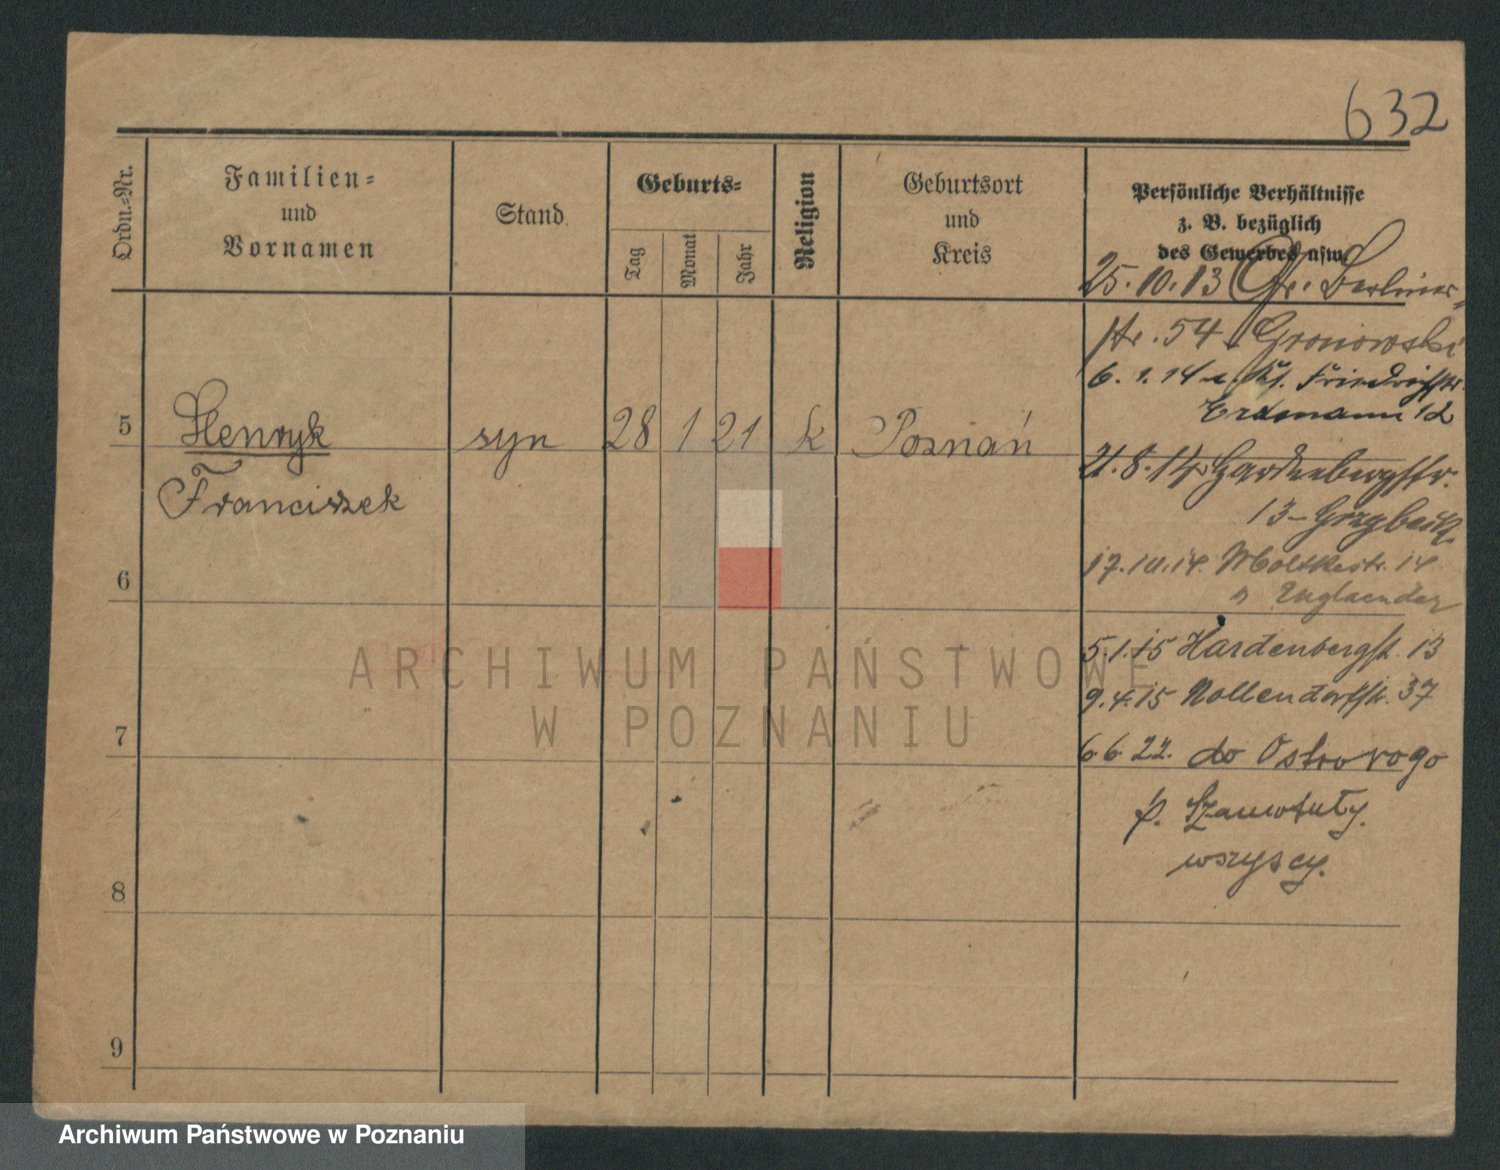 632
Ordn.-Nr.
Familien-
und
Vornamen
Stand.
Geburts-
Tag
Monat
Jahr
Religion
Geburtsort
und
Kreis
Persönliche Verhältnisse
z. B. bezüglich
des Gewerbes usw.
25.10.13 Gr. Berliner-
str. 54 Gronowski
6. 1. 14 Friedrichstr
Erdmann 12
5
Henryk
syn
28
1
21
k
Poznań
Franciszek
21.8.14 Hardenbergstr.
13- Grzybeck
17.10.14. Moltkestr. 14
6
" Englaender
5.1.15 Hardenbergst. 13
9.4.15 Nollendorfstr. 37
7
6 6 22. do Ostroroga
p. Szamotuły.
wszyscy.
8
9
ARCHIWUM PAŃSTWOWE
W POZNANIU
Archiwum Państwowe w Poznaniu